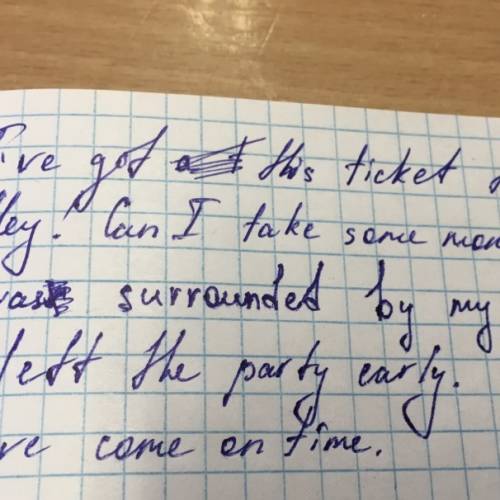 I've got this ticket
Hey! Can I take some mon
was surrounded by my
left the party early.
ve come on time.